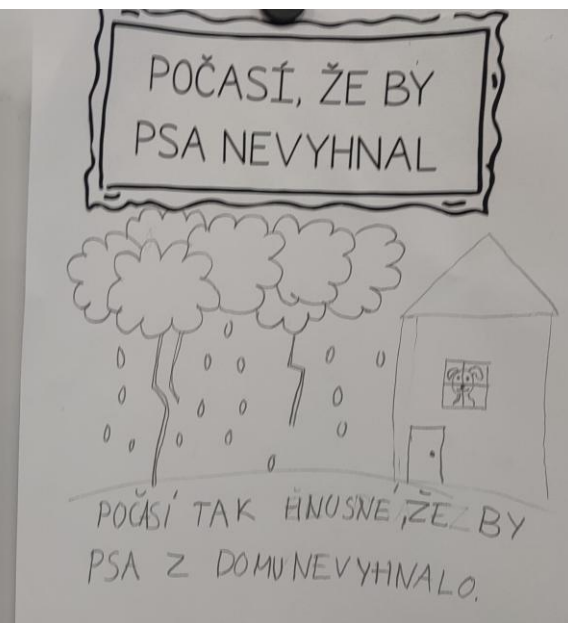 POČASÍ, ŽE BY
PSA NEVYHNAL
POČASÍ TAK HNUSNÉ, ŽE BY
PSA Z DOMU NEVYHNALO.